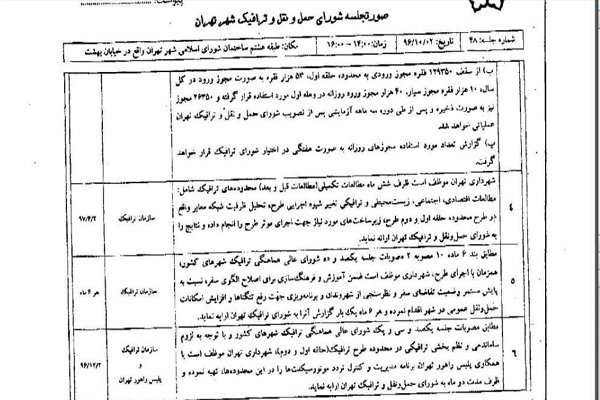 صورتجلسه شورای حمل و نقل و ترافیک شهر تهران
شماره جلسه: ۴۸
تاریخ: ۹۶/۱۰/۰۲
زمان: ۱۴:۰۰ – ۱۶:۰۰
مکان: طبقه هشتم ساختمان شورای اسلامی شهر تهران واقع در خیابان بهشت
ب) از سقف ۱۲۹۳۵۰ فقره مجوز ورودی به محدوده حلقه اول، ۵۳ هزار فقره به صورت مجوز ورود در کل
سال، ۱۰ هزار فقره مجوز سیار، ۴۰ هزار مجوز ورود روزانه در وهله اول مورد استفاده قرار گرفته و ۲۶۳۵۰ مجوز
نیز به صورت ذخیره و پس از طی دوره سه ماهه آزمایشی پس از تصویب شورای حمل و نقل و ترافیک تهران
عملیاتی خواهد شد.
پ) گزارش تعداد مورد استفاده مجوزهای روزانه به صورت هفتگی در اختیار شورای ترافیک قرار خواهد
گرفت.
۴
شهرداری تهران موظف است ظرف شش ماه مطالعات تکمیلی(مطالعات قبل و بعد) محدوده‌های ترافیک شامل:
مطالعات اقتصادی، اجتماعی، زیست‌محیطی و ترافیکی تغییر شیوه اجرایی طرح، تحلیل ظرفیت شبکه معابر واقع
در طرح محدوده حلقه اول و دوم طرح، زیرساخت‌های مورد نیاز جهت اجرای موثر طرح را انجام داده و نتایج را
به شورای حمل‌ونقل و ترافیک تهران ارائه نماید.
سازمان ترافیک
۹۷/۴/۲
۵
مطابق بند ۶ ماده ۱۰ مصوبه ۲ مصوبات جلسه یکصد و ده شورای عالی هماهنگی ترافیک شهرهای کشور،
همزمان با اجرای طرح، شهرداری موظف است ضمن آموزش و فرهنگ‌سازی برای اصلاح الگوی سفر، نسبت به
پایش مستمر وضعیت تقاضای سفر و نظرسنجی از شهروندان و برنامه‌ریزی جهت رفع تنگناها و افزایش امکانات
حمل‌ونقل عمومی در شهر اقدام نموده و هر ۶ ماه یک بار گزارش آنرا به شورای ترافیک تهران ارایه نماید.
سازمان ترافیک
هر ۶ ماه
۶
مطابق مصوبات جلسه یکصد و سی و یک شورای عالی هماهنگی ترافیک شهرهای کشور و با توجه به لزوم
ساماندهی و نظم بخشی ترافیکی در محدوده طرح ترافیک(حلقه اول و دوم)، شهرداری تهران موظف است با
همکاری پلیس راهور تهران برنامه مدیریت و کنترل تردد موتورسیکلت‌ها را در این محدوده‌ها، تهیه نموده و
ظرف مدت دو ماه به شورای حمل‌ونقل و ترافیک تهران ارایه نماید.
سازمان ترافیک
و
پلیس راهور تهران
۹۶/۱۲/۲